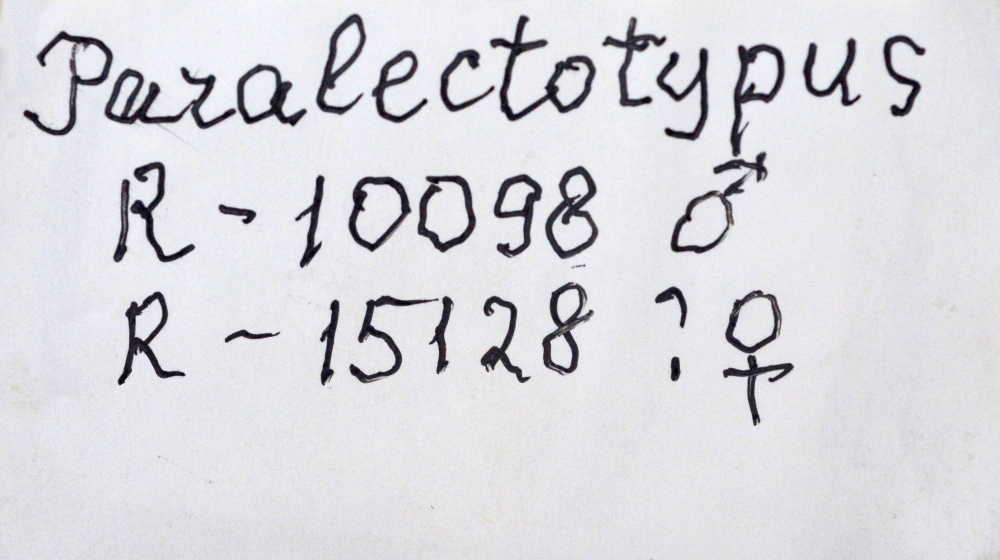 Paralectotypus
R - 10098 ♂
R - 15128 ?♀